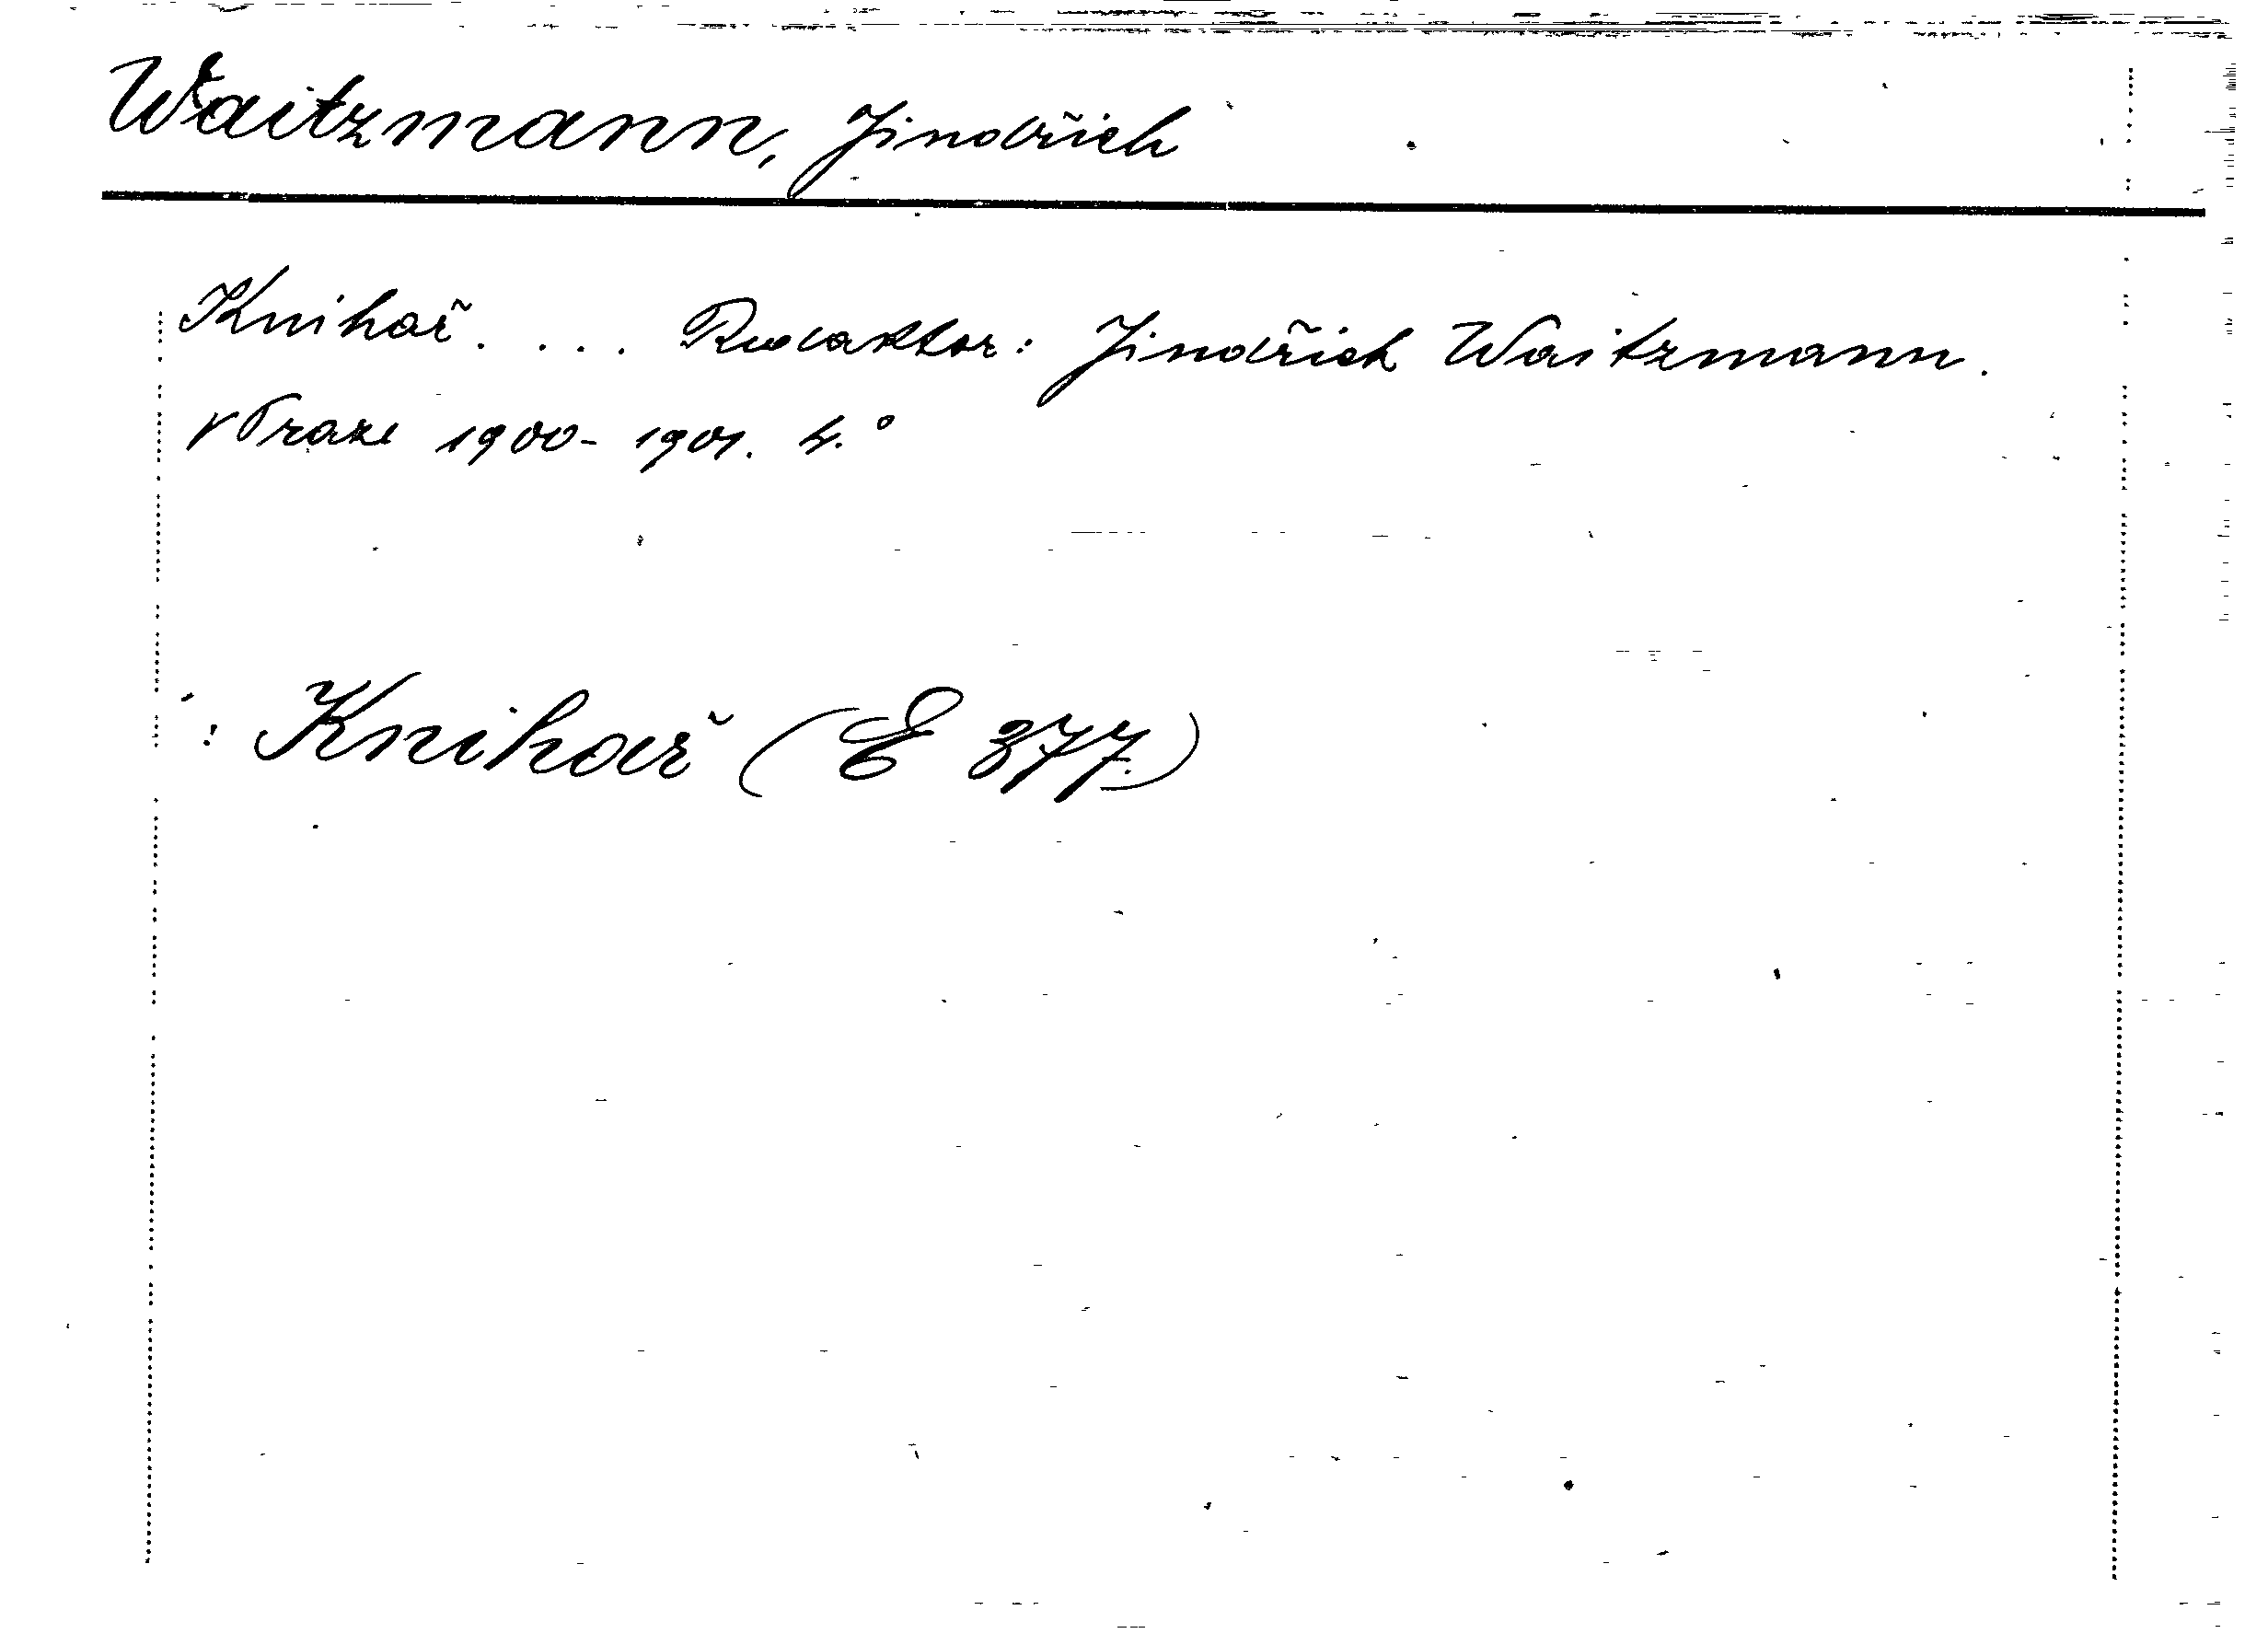 Waitzmann, Jindřich
Knihař. ... Redaktor: Jindřich Waitzmann.
V Praze 1900-1901. 4.°
: Knihař (E 377.)